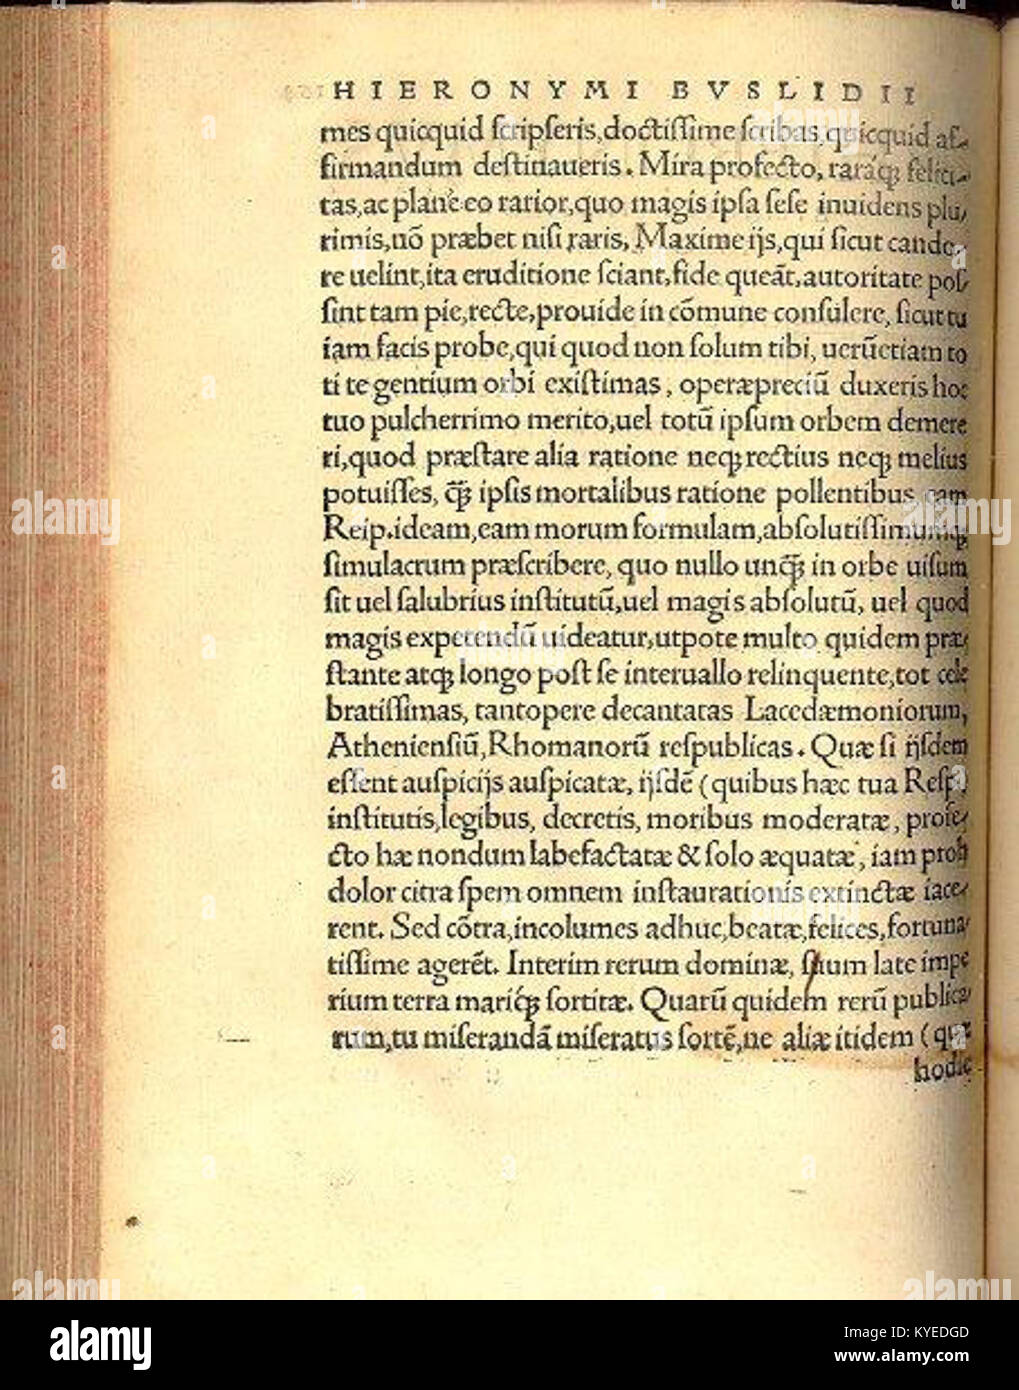 HIERONYMI BVSLIDII
mes quicquid ſcripſeris,doctiſſime ſcribas,quicquid af-
firmandum deſtinaueris. Mira profecto, raraq́ꝫ felici-
tas,ac plane eo rarior,quo magis ipſa ſeſe inuidens plu-
rimis,nõ præbet niſi raris, Maxime ijs,qui ſicut cando-
re uelint,ita eruditione ſciant,fide queãt,autoritate poſ-
ſint tam pie,recte,prouide in cõmune conſulere, ſicut tu
iam facis probe,qui quod non ſolum tibi, uerũetiam to
ti te gentium orbi exiſtimas, operæpreciũ duxeris hoc
tuo pulcherrimo merito,uel totũ ipſum orbem demere
ri,quod præſtare alia ratione neqꝫ rectius neqꝫ melius
potuiſſes, q̃ꝫ ipſis mortalibus ratione pollentibus eam
Reip.ideam,eam morum formulam,abſolutiſſimumqꝫ
ſimulacrum præſcribere, quo nullo unq̃ꝫ in orbe uiſum
ſit uel ſalubrius inſtitutũ,uel magis abſolutũ, uel quod
magis expetendũ uideatur,utpote multo quidem præ-
ſtante atqꝫ longo poſt ſe interuallo relinquente,tot cele
bratiſſimas, tantopere decantatas Lacedæmoniorum,
Athenienſiũ,Rhomanorũ reſpublicas. Quæ ſi ijſdem
eſſent auſpicijs auſpicatæ, ijſdẽ (quibus hæc tua Reſp.
inſtitutis,legibus, decretis, moribus moderatæ, profe-
cto hæ nondum labefactatæ & ſolo æquatæ, iam proh
dolor citra ſpem omnem inſtaurationis extinctæ iace-
rent. Sed cõtra,incolumes adhuc,beatæ,felices,fortuna-
tiſſime agerẽt. Interim rerum dominæ, ſuum late impe
rium terra mariq́ꝫ ſortitæ. Quarũ quidem rerũ publica-
rum,tu miſerandã miſeratus ſortẽ,ne aliæ itidem (quæ
hodie
alamy
Image ID: KYEDGD
www.alamy.com